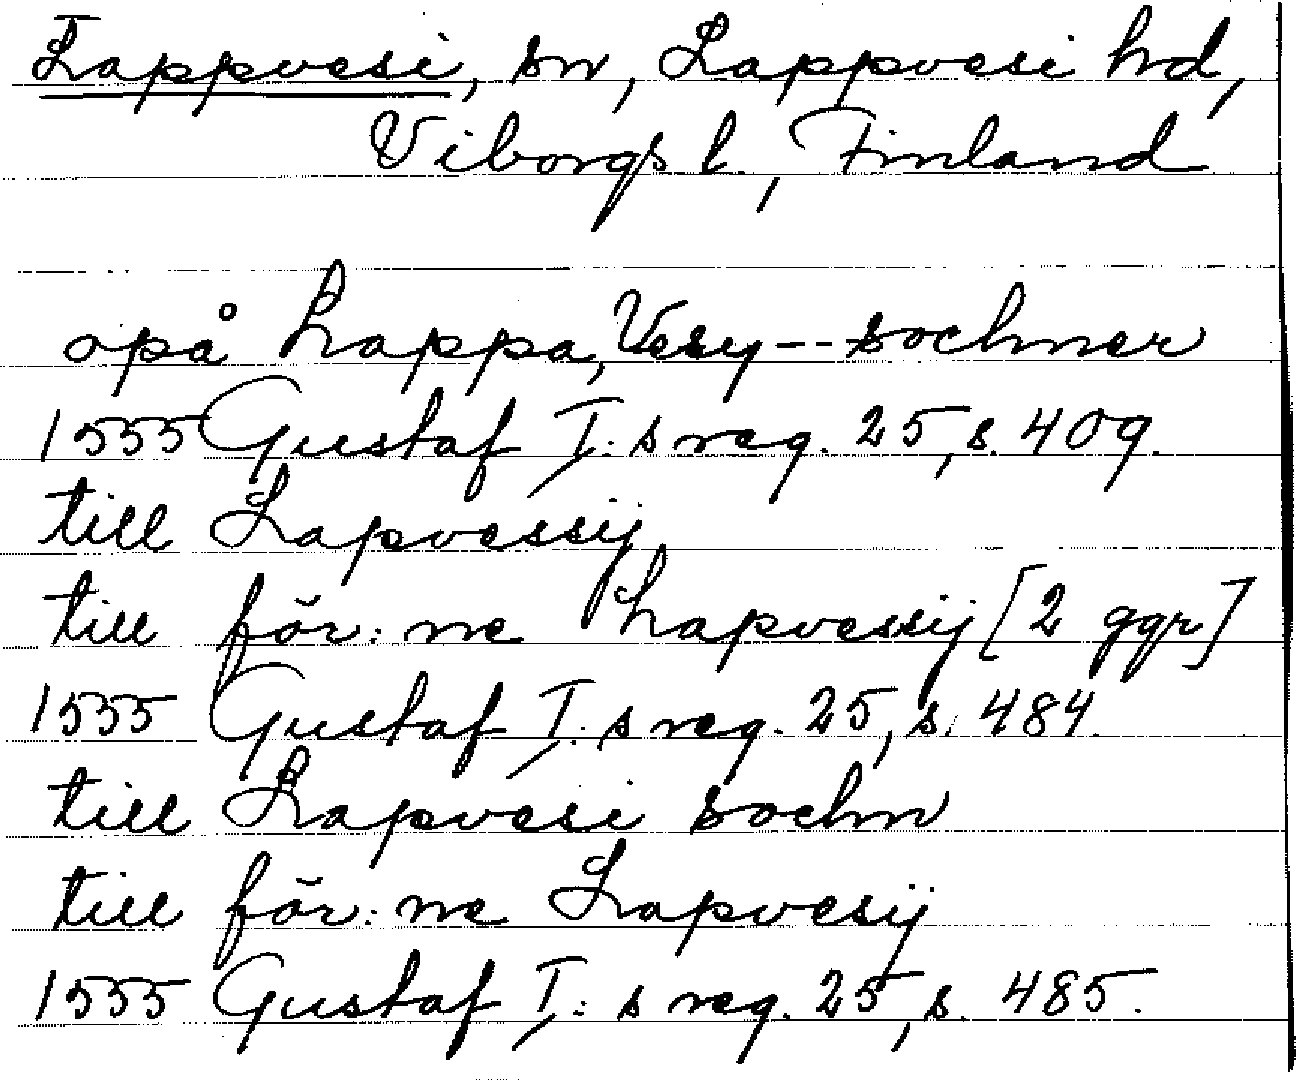 Lappvesi, sn, Lappvesi hd,
Viborgs l., Finland
opå Lappa, Vesy -- sochner
1555 Gustaf I:s reg. 25, s. 409.
till Lapvessij
till för:ne Lapvessij [2 ggr]
1555 Gustaf I:s reg. 25, s. 484.
till Lapvesi sochn
till för:ne Lapvesij
1555 Gustaf I:s reg. 25, s. 485.